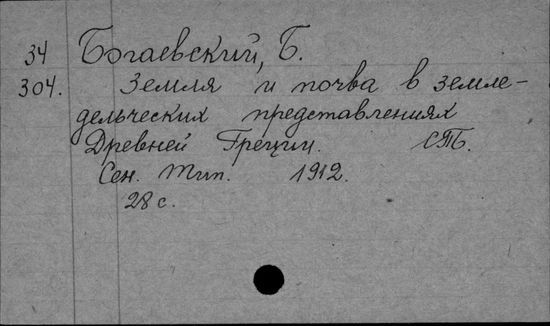 34 Богаевский, Б.
304. Земля и почва в земле-
дельческих представлениях
Древней Греции. СПб.
Сен. Тип. 1912.
28 с.